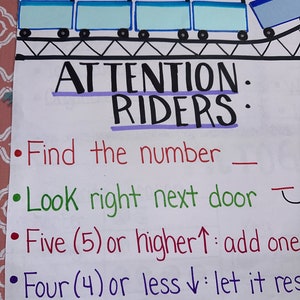 ATTENTION
RIDERS:
• Find the number __
• Look right next door
• Five (5) or higher↑: add one
• Four (4) or less↓: let it res